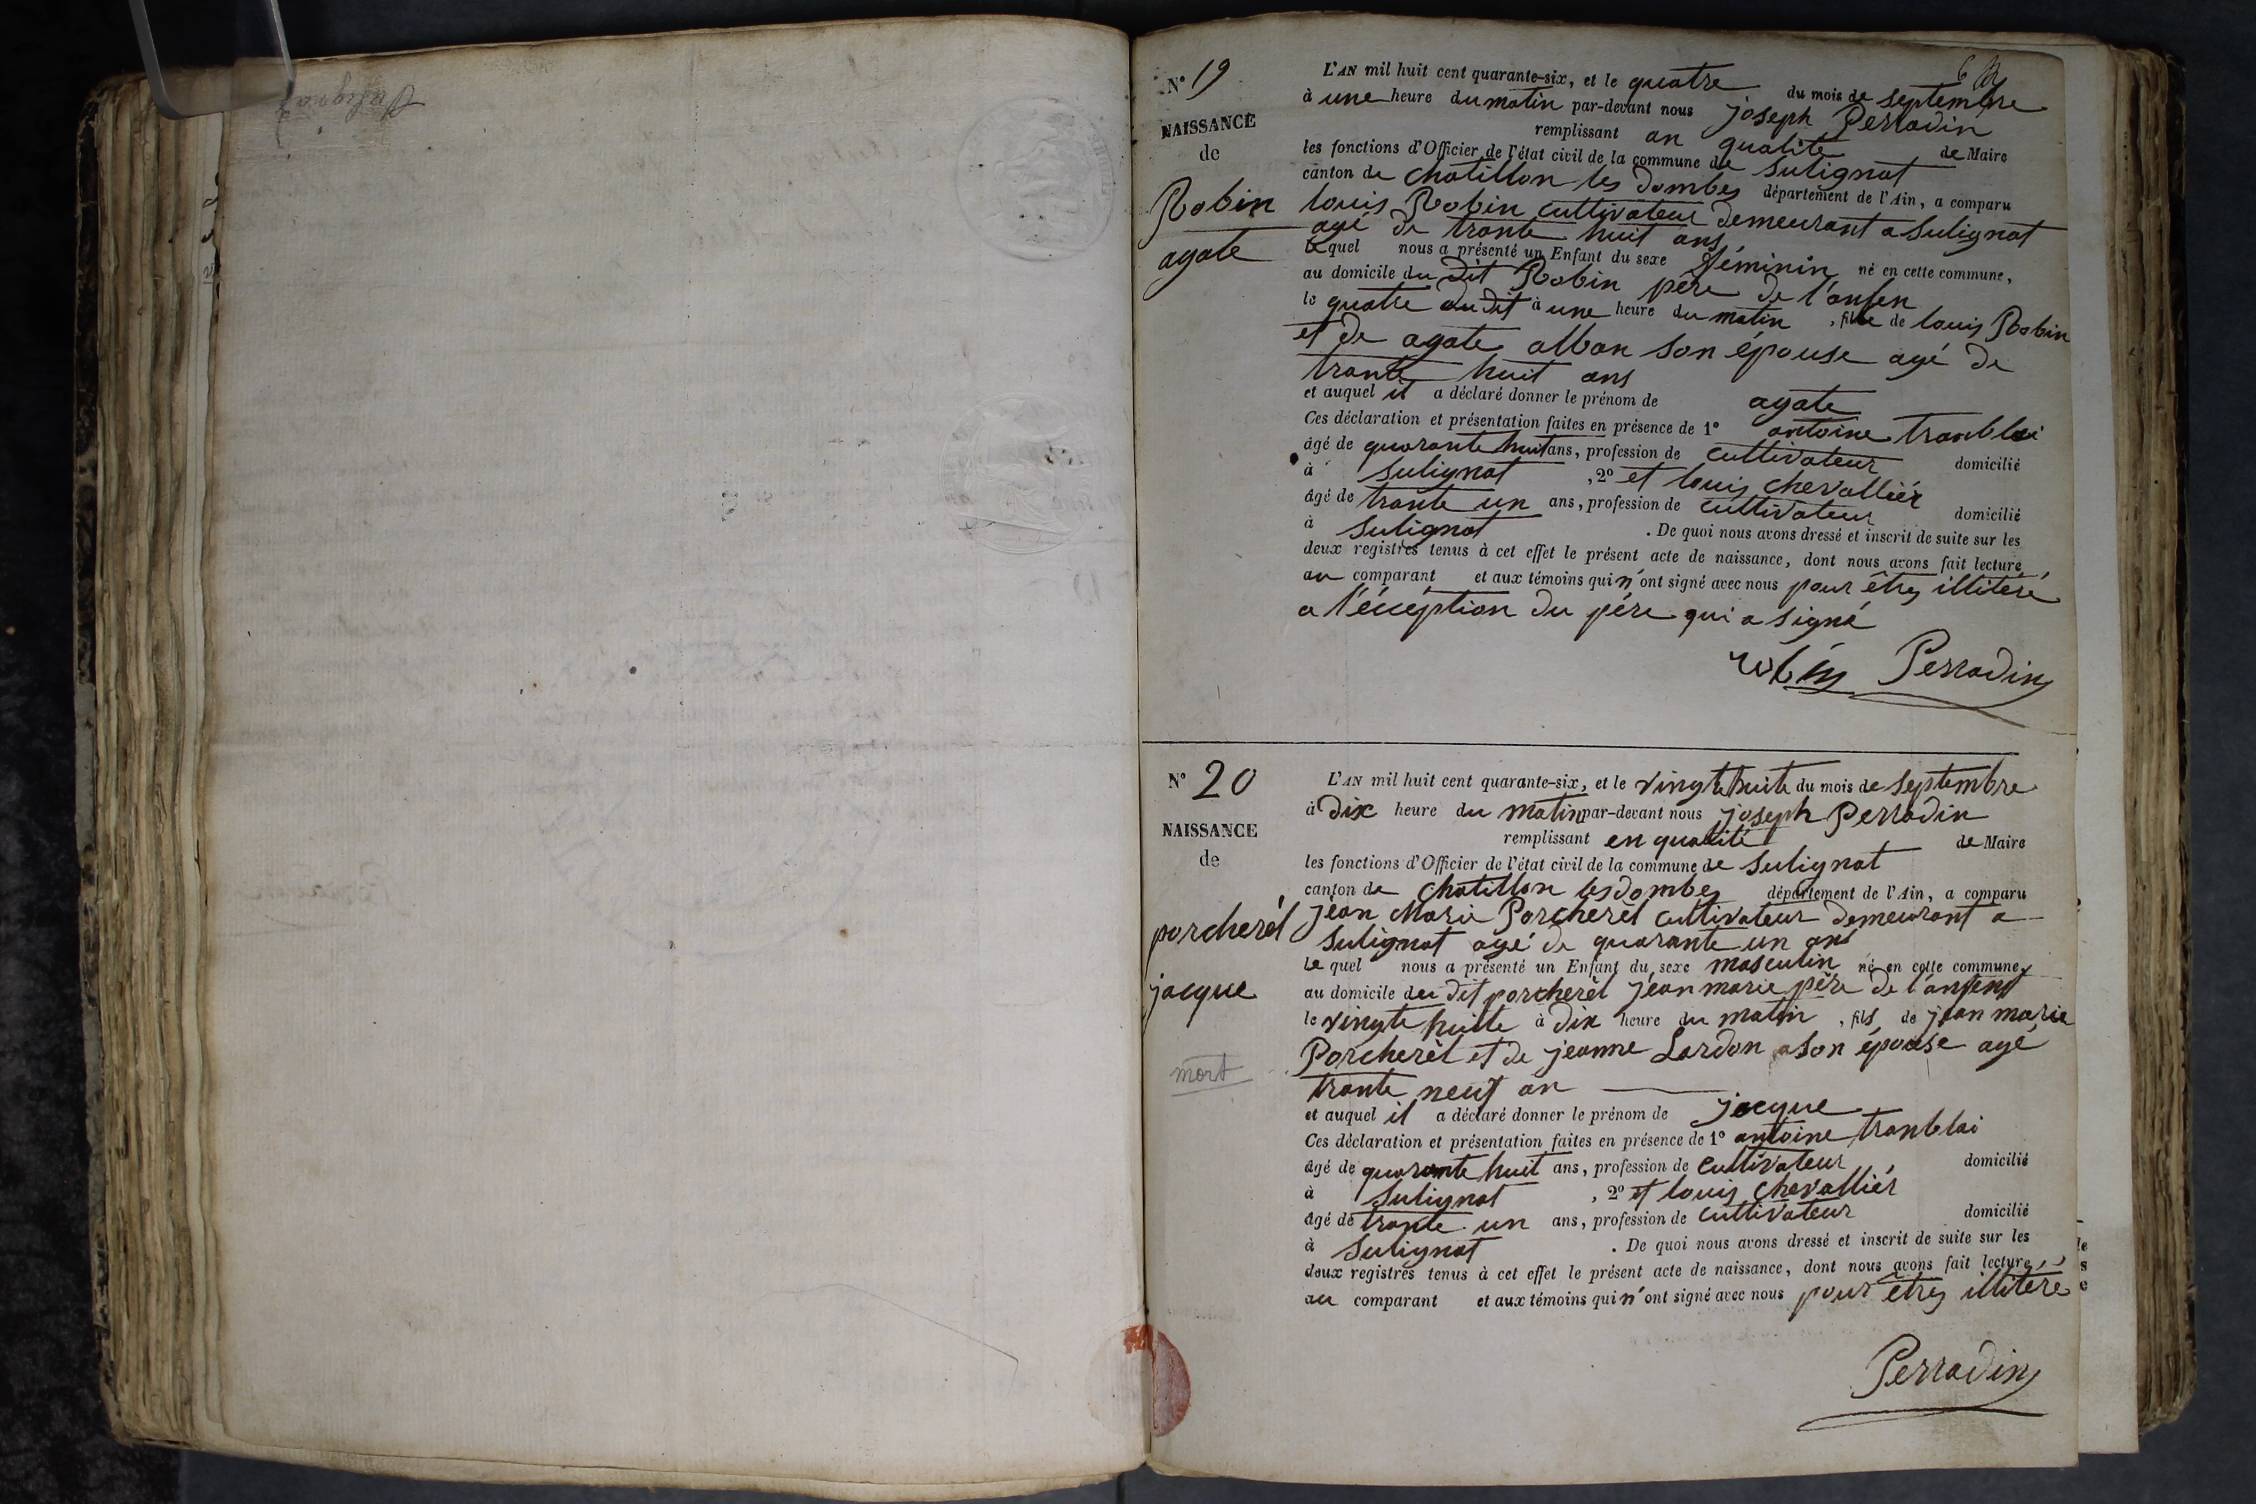 N° 19
NAISSANCE
de
Robin
agate
L'AN mil huit cent quarante-six, et le quatre du mois de septembre
à une heure du matin par-devant nous joseph Perradin
remplissant an qualité de Maire
les fonctions d'Officier de l'état civil de la commune de Sulignat
canton de chatillon les dombes département de l'Ain, a comparu
louis Robin cultivateur demeurant a Sulignat
agé de trante huit ans
le quel nous a présenté un Enfant du sexe féminin né en cette commune,
au domicile du dit Robin père de l'anfen
le quatre du dit à une heure du matin , fille de louis Robin
et de agate alban son épouse agé de
trante huit ans
et auquel il a déclaré donner le prénom de agate
Ces déclaration et présentation faites en présence de 1° antoine tranblai
âgé de quarante huit ans, profession de cultivateur domicilié
à Sulignat , 2° et louis chevalliér
âgé de trante un ans, profession de cultivateur domicilié
à Sulignat . De quoi nous avons dressé et inscrit de suite sur les
deux registres tenus à cet effet le présent acte de naissance, dont nous avons fait lecture
au comparant et aux témoins qui n'ont signé avec nous pour êtres illitéré
a l'écéption du pére qui a signé
robin Perradin
N° 20
NAISSANCE
de
porcherél
jacque
mort
L'AN mil huit cent quarante-six, et le vingthuite du mois de septembre
à dix heure du matin par-devant nous joseph Perradin
remplissant en qualité de Maire
les fonctions d'Officier de l'état civil de la commune de Sulignat
canton de chatillon les dombes département de l'Ain, a comparu
jéan Marie Porcherèl cultivateur demeurant a
Sulignat agé de quarante un ans
le quel nous a présenté un Enfant du sexe masculin né en cette commune,
au domicile du dit porcherèl jean marie père de l'anfent
le vingte huitte à dix heure du matin , fils de jean marie
Porcherèl et de jeanne Lardon son épouse agé
trante neuf an
et auquel il a déclaré donner le prénom de jacque
Ces déclaration et présentation faites en présence de 1° antoine tranblai
âgé de quarante huit ans, profession de cultivateur , domicilié
à Sulignat , 2° et louis chevalliér
âgé de trante un ans, profession de cultivateur domicilié
à Sulignat . De quoi nous avons dressé et inscrit de suite sur les
deux registres tenus à cet effet le présent acte de naissance, dont nous avons fait lecture
au comparant et aux témoins qui n'ont signé avec nous pour êtres illitéré
Perradin